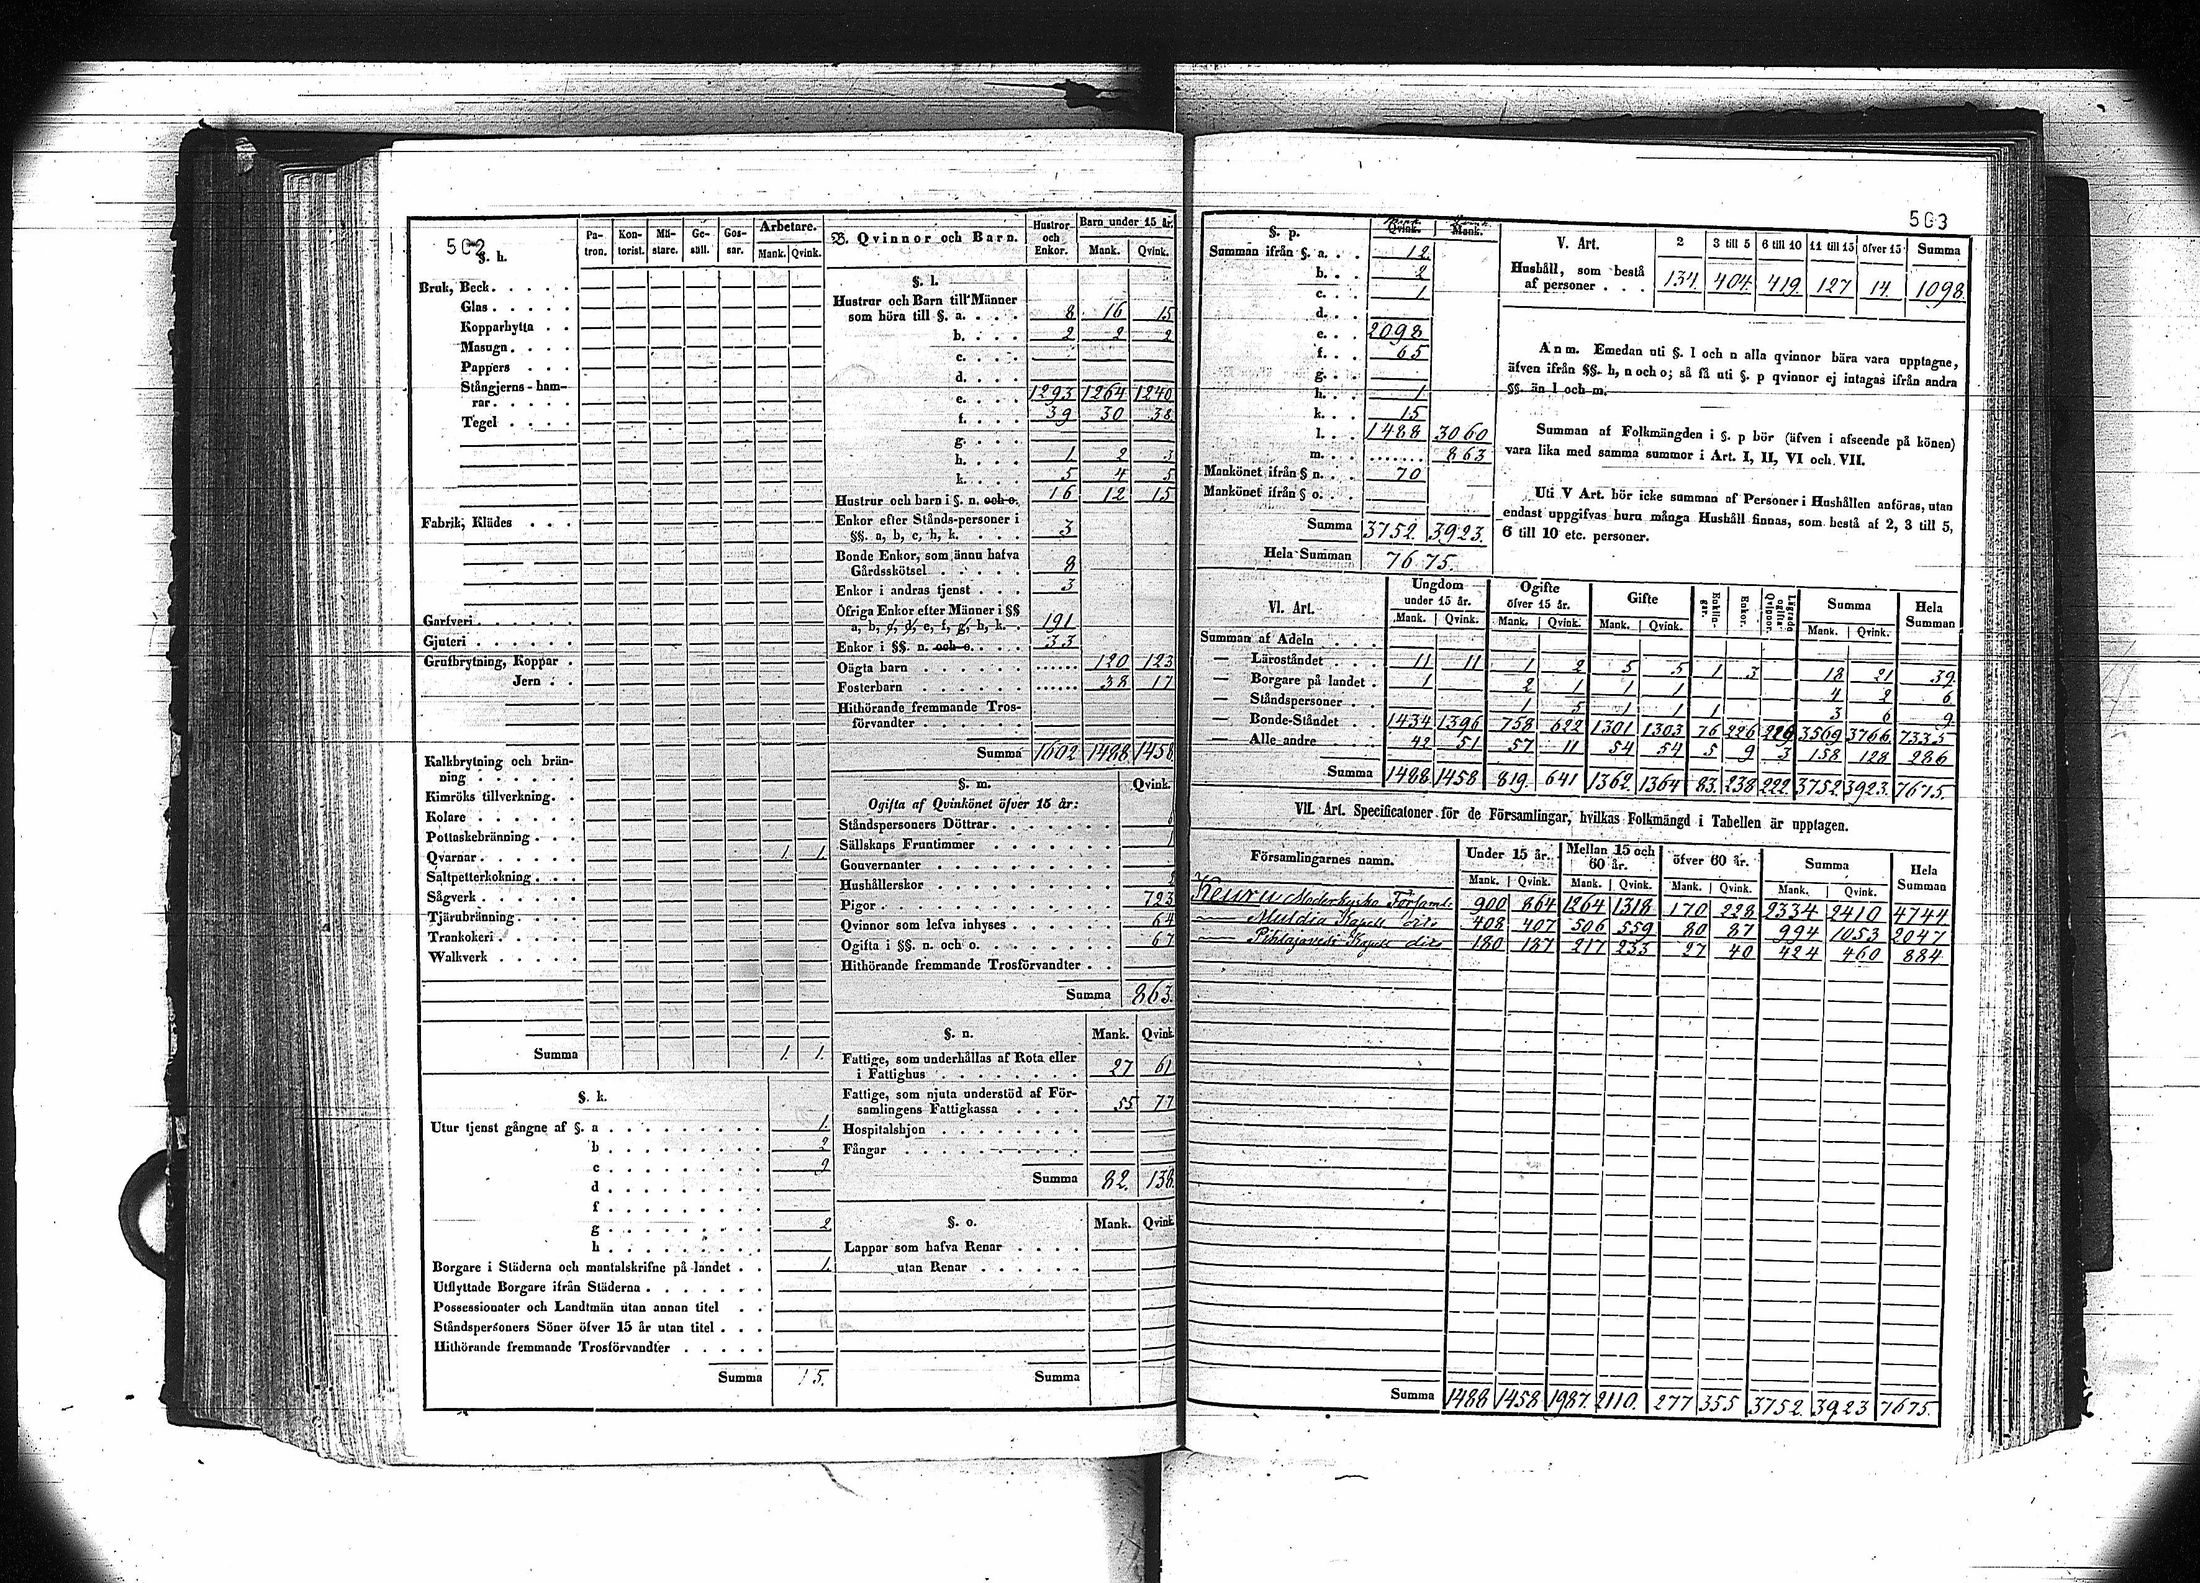 502
§. h.
Pa- tron. Kon- torist. Mä- stare. Ge- säll. Gos- sar. Arbetare. Mank. Qvink.
Bruk, Beck
Glas
Kopparhytta
Masugn
Pappers
Stångjerns-ham-
rar
Tegel
Fabrik, Klädes
Garfveri
Gjuteri
Grufbrytning, Koppar
Jern
Kalkbrytning och brän-
ning
Kimröks tillverkning
Kolare
Pottaskebränning
Qvarnar 1. 1.
Saltpetterkokning
Sågverk
Tjärubränning
Trankokeri
Walkverk
Summa 1. 1.
§. k.
Utur tjenst gångne af §. a 1.
b 2
c 9
d
f
g 2
h
Borgare i Städerna och mantalskrifne på landet 1.
Utflyttade Borgare ifrån Städerna
Possessionater och Landtmän utan annan titel
Ståndspersoners Söner öfver 15 år utan titel
Hithörande fremmande Trosförvandter
Summa 15.
B. Qvinnor och Barn. Hustror och Enkor. Barn under 15 år. Mank. Qvink.
§. l.
Hustrur och Barn till Männer
som höra till §. a. 8 16 15
b. 2 2 2
c.
d.
e. 1293 1264 1240
f. 39 30 38
g.
h. 1 2 3
k. 5 4 5
Hustrur och barn i §. n. och o. 16 12 15
Enkor efter Stånds-personer i
§§. a, b, c, h, k. 3
Bonde Enkor, som ännu hafva
Gårdsskötsel 8
Enkor i andras tjenst 3
Öfriga Enkor efter Männer i §§
a, b, c, d, e, f, g, h, k. 191
Enkor i §§. n. och o. 33
Oägta barn 120 123
Fosterbarn 38 17
Hithörande fremmande Tros-
förvandter
Summa 1602 1488 1458
§. m. Qvink.
Ogifta af Qvinkönet öfver 15 år:
Ståndspersoners Döttrar
Sällskaps Fruntimmer
Gouvernanter
Hushållerskor
Pigor 723
Qvinnor som lefva inhyses 64
Ogifta i §§. n. och o. 67
Hithörande fremmande Trosförvandter
Summa 863.
§. n. Mank. Qvink.
Fattige, som underhållas af Rota eller
i Fattighus 27 61
Fattige, som njuta understöd af För-
samlingens Fattigkassa 55 77
Hospitalshjon
Fångar
Summa 82. 138
§. o. Mank. Qvink.
Lappar som hafva Renar
utan Renar
Summa
503
§. p.
Summan ifrån §. a. 12
b. 2
c. 1
d.
e. 2098
f. 65
g.
h. 1
k. 15
l. 1488 3060
m. 863
Mankönet ifrån § n. 70
Mankönet ifrån § o.
Summa 3752. 3923.
Hela Summan 7675.
V. Art. 2 3 till 5 6 till 10 11 till 15 öfver 15 Summa
Hushåll, som bestå
af personer 134. 404. 419. 127 14. 1098.
Anm. Emedan uti §. l och n alla qvinnor bära vara upptagne,
äfven ifrån §§. h, n och o; så få uti §. p qvinnor ej intagas ifrån andra
§§. än l och m.
Summan af Folkmängden i §. p bör (äfven i afseende på könen)
vara lika med samma summor i Art. I, II, VI och VII.
Uti V Art. bör icke summan af Personer i Hushållen anföras, utan
endast uppgifvas huru många Hushåll finnas, som bestå af 2, 3 till 5,
6 till 10 etc. personer.
VI. Art. Ungdom under 15 år. Ogifte öfver 15 år. Gifte Enklin- gar. Enkor. Lägrade ogifta Qvinnor. Summa Hela Summan
Mank. Qvink. Mank. Qvink. Mank. Qvink. Mank. Qvink.
Summan af Adeln
— Läroståndet 11 11 1 2 5 5 1 3 18 21 39
— Borgare på landet 1 2 1 1 1 4 2 6
— Ståndspersoner 1 5 1 1 1 3 6 9
— Bonde-Ståndet 1434 1396 758 622 1301 1303 76 226 219 3569 3766 7335
— Alle andre 42 51 57 11 54 54 5 9 3 158 128 286
Summa 1488 1458 819. 641 1362. 1364 83. 238 222 3752 3923. 7675.
VII. Art. Specificatoner för de Församlingar, hvilkas Folkmängd i Tabellen är upptagen.
Församlingarnes namn. Under 15 år. Mellan 15 och 60 år. öfver 60 år. Summa Hela Summan
Mank. Qvink. Mank. Qvink. Mank. Qvink. Mank. Qvink.
Keuru Moderkyrko Församl. 900 864 1264 1318 170 228 2334 2410 4744
— Multia Kapell dito 408 407 506 559 80 87 994 1053 2047
— Pihlajavesi Kapell dito 180 187 217 233 27 40 424 460 884
Summa 1488 1458 1987. 2110. 277 355 3752. 3923 7675.